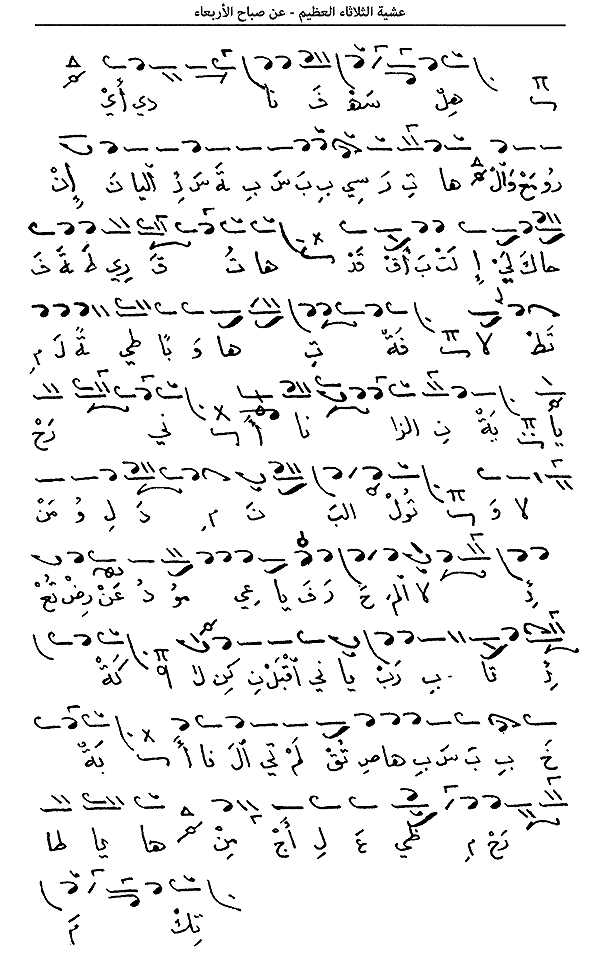 عشية الثلاثاء العظيم - عن صباح الأربعاء
هِلْ سَهْ فَ نا أَيْ دي
رُو مَحْ وَالْ ها تِ رَ سي بِ بَ سَ بِ ةَ سَ نِ اليا تَ إِنْ
حا كَ لَيْ إِ لَتْ بَ أَقْ قَدْ ها تُ قَ ري طَ ةَ قَ
تَظْ لا فَةْ تِ ها وَ بًا طي ةً لَ مِ
يا بَةْ نِ الزا نا أَ ني رَحْ
لا وَ تُولْ البَ تَ مِ دَ لِ وُ مَنْ
ذِ لا الْمُ حَ رَ فَ يا عي مُو دُ عَنْ رِضْ تُعْ
ذِ قا بِ رَبْ يا ني اقْبَلْنِ كِنْ لا كَةْ
خَ بِ بَ سَ بِ ها صِ تُقْ لَمْ تي الَ فا أَ بَةْ
نَحْ مِ ظي عَ لِ أَجْ مِنْ ها يا طا
تِكْ مَ